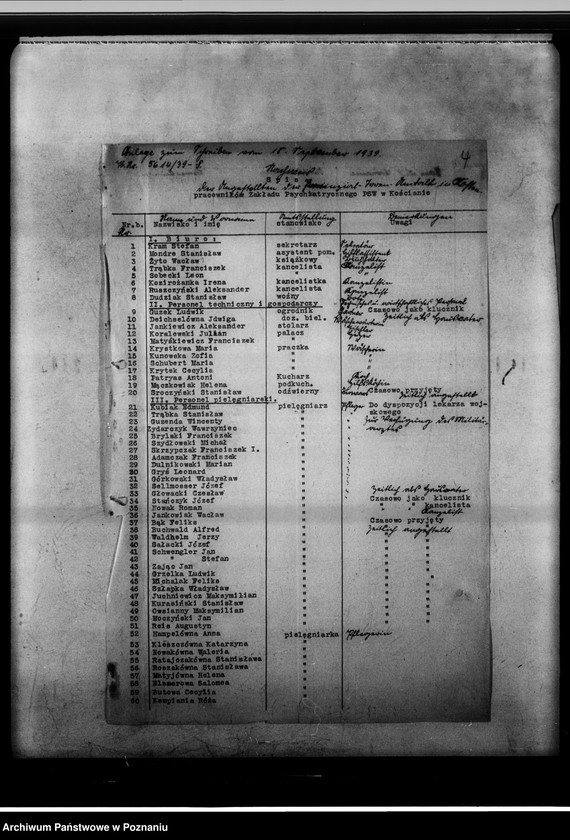 Anlage zum Schreiben vom 18. September 1939.
4
S p i s
pracowników Zakładu Psychiatrycznego PGW w Kościanie
Nr.b. Nazwisko i imię stanowisko Uwagi
I. B i u r o :
1 Kram Stefan sekretarz
2 Mondre Stanisław asystent pom.
3 Żyto Wacław książkowy
4 Trąbka Franciszek kancelista Kanzelist
5 Sobecki Leon "
6 Kozirożanka Irena kancelistka Kanzelistin
7 Ruszczyński Aleksander kancelista Kanzelist
8 Dudziak Stanisław woźny
II. Personel techniczny i gospodarczy
9 Guzek Ludwik ogrodnik Czasowo jako klucznik
10 Deichselówna Jdwiga doz. biel.
11 Jankiewicz Aleksander stolarz Tischler
12 Koralewski Julian palacz Heizer
13 Matyśkiewicz Franciszek "
14 Krystkowa Maria praczka Wäscherin
15 Kunowska Zofia "
16 Schubert Maria "
17 Krytek Cecylia "
18 Patryas Antoni Kucharz Koch
19 Mączkowiak Helena podkuch.
20 Sroczyński Stanisław odźwierny Czasowo przyjęty
zeitlich angestellt
III. Personel pielęgniarski.
21 Kubiak Edmund pielęgniarz Pfleger Do dyspozycji lekarza woj-
22 Trąbka Stanisław " skowego
23 Guzenda Wincenty " zur Verfügung des Militär-
24 Zydarczyk Wawrzyniec " arztes
25 Brylski Franciszek "
26 Szydłowski Michał "
27 Skrzypczak Franciszek I. "
28 Adamczak Franciszek "
29 Dulnikowski Marian "
30 Gryś Leonard "
31 Górkowski Władysław "
32 Sellmosser Józef "
33 Głowacki Czesław " Czasowo jako klucznik
34 Stańczyk Józef " " " kancelista
35 Nowak Roman " Kanzelist
36 Jankowiak Wacław "
37 Bąk Feliks " Czasowo przyjęty
38 Buchwald Alfred " zeitlich angestellt
39 Waldhelm Jerzy " " "
40 Sałacki Józef " " "
41 Schwengler Jan " " "
42 " Stefan " " "
43 Zając Jan " " "
44 Grzelka Ludwik " " "
45 Michalak Feliks " " "
46 Szłapka Władysław " " "
47 Juchniewicz Maksymilian " " "
48 Kurasiński Stanisław " " "
49 Owsianny Maksymilian " " "
50 Moczyński Jan " " "
51 Reis Augustyn "
52 Hampelówna Anna pielęgniarka Pflegerin
53 Kleszczówna Katarzyna "
54 Nowakówna Waleria "
55 Ratajczakówna Stanisława "
56 Roszakówna Stanisława "
57 Matyjówna Helena "
58 Klemarowa Salomea "
59 Butowa Cecylia "
60 Kempiania Róża "
Archiwum Państwowe w Poznaniu